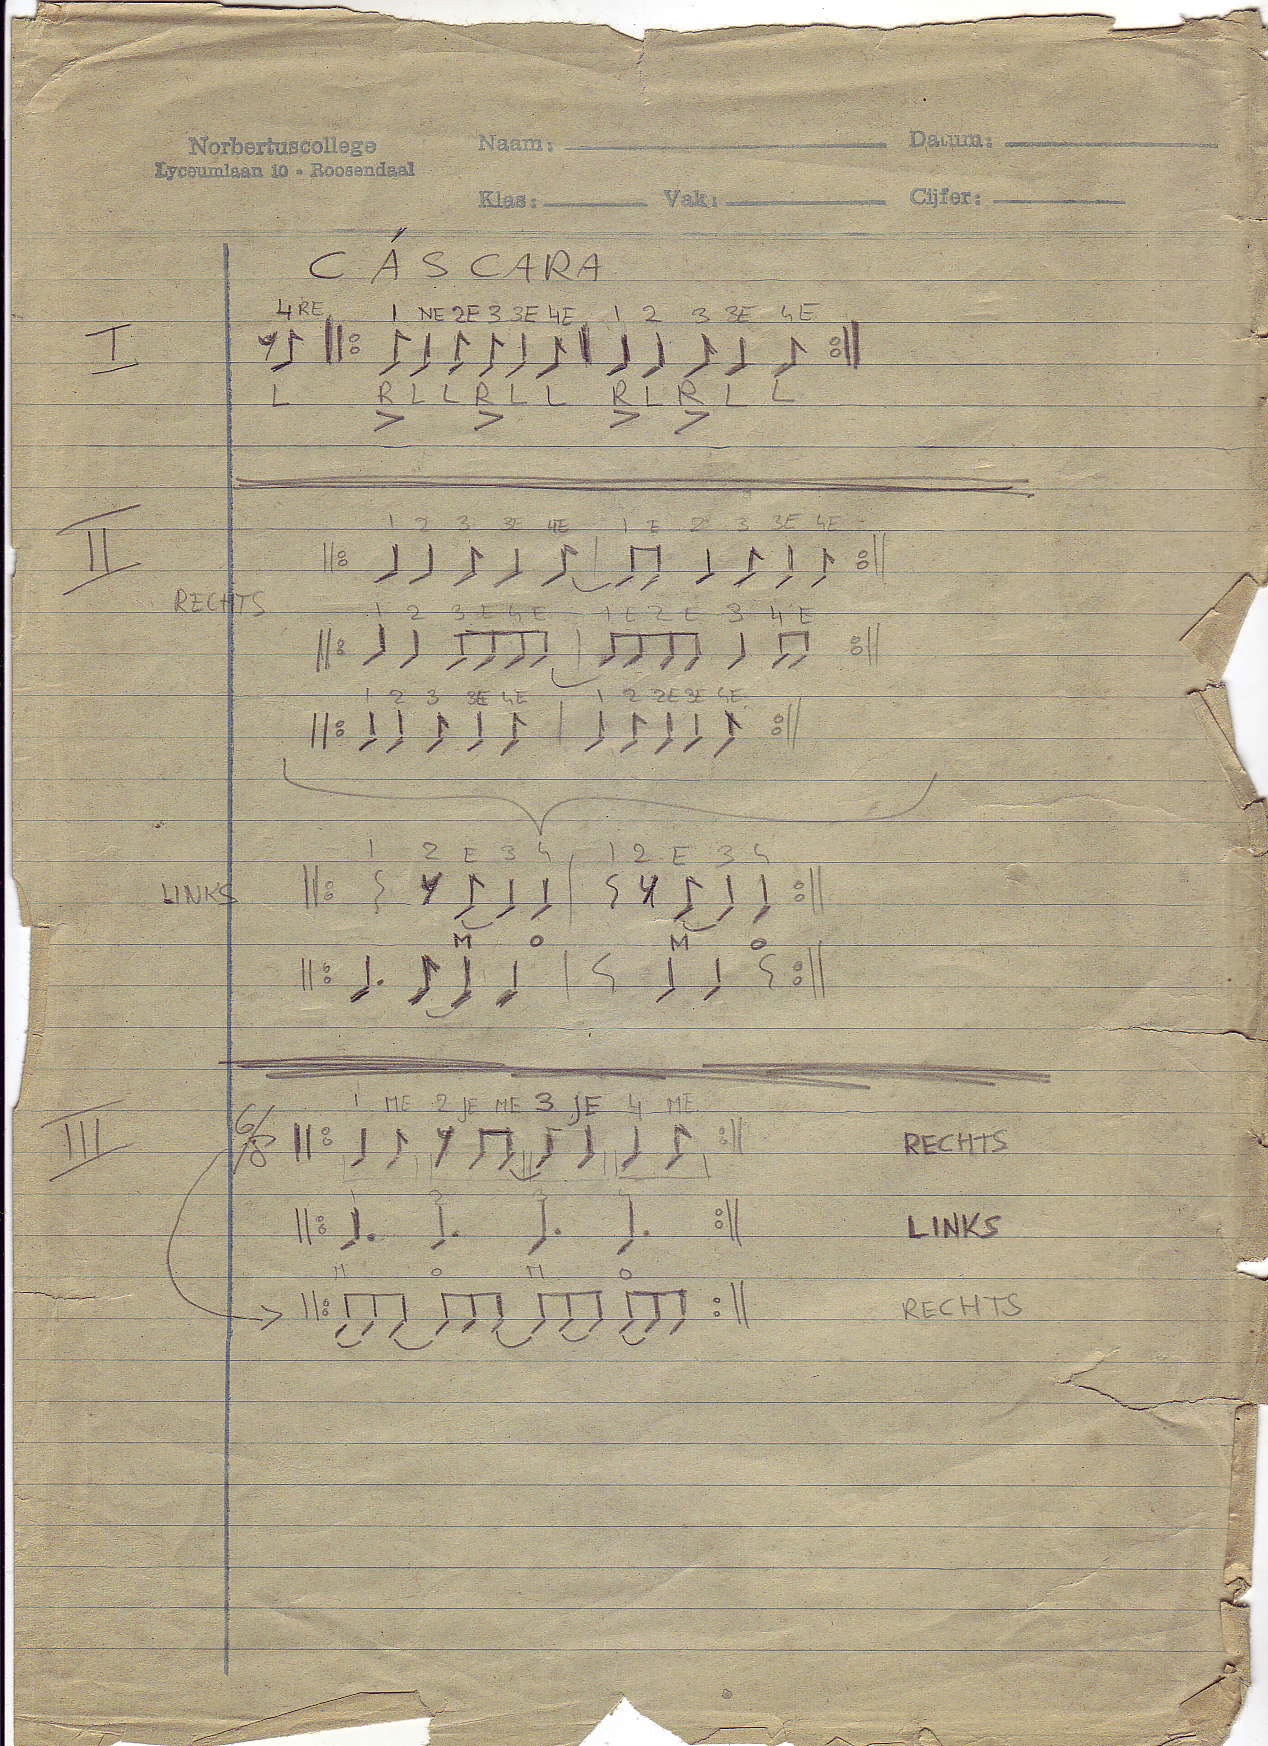 Norbertuscollege Naam: Datum:
Lyceumlaan 10 - Roosendaal
Klas: Vak: Cijfer:
CÁSCARA
4 RE 1 NE 2E 3 3E 4E 1 2 3 3E 4E
I
L R L L R L L R L R L L
> > > >
1 2 3 3E 4E 1 E 2 3 3E 4E
II
RECHTS
1 2 3 E 4 E 1 E 2 E 3 4 E
1 2 3 3E 4E 1 2 2E 3E 4E
1 2 E 3 4 1 2 E 3 4
LINKS
M O M O
1 ME 2 JE ME 3 JE 4 ME
III 6/8 RECHTS
1 2 3 4
LINKS
M O M O
RECHTS